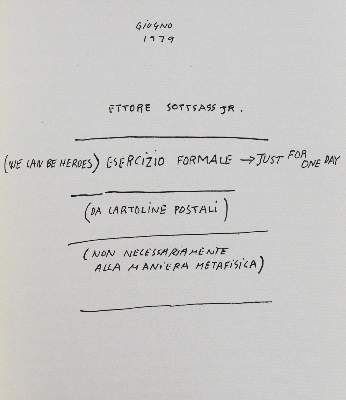 GIUGNO
1979
ETTORE SOTTSASS JR.
(WE CAN BE HEROES) ESERCIZIO FORMALE → JUST FOR ONE DAY
(DA CARTOLINE POSTALI)
(NON NECESSARIAMENTE
ALLA MANIERA METAFISICA)